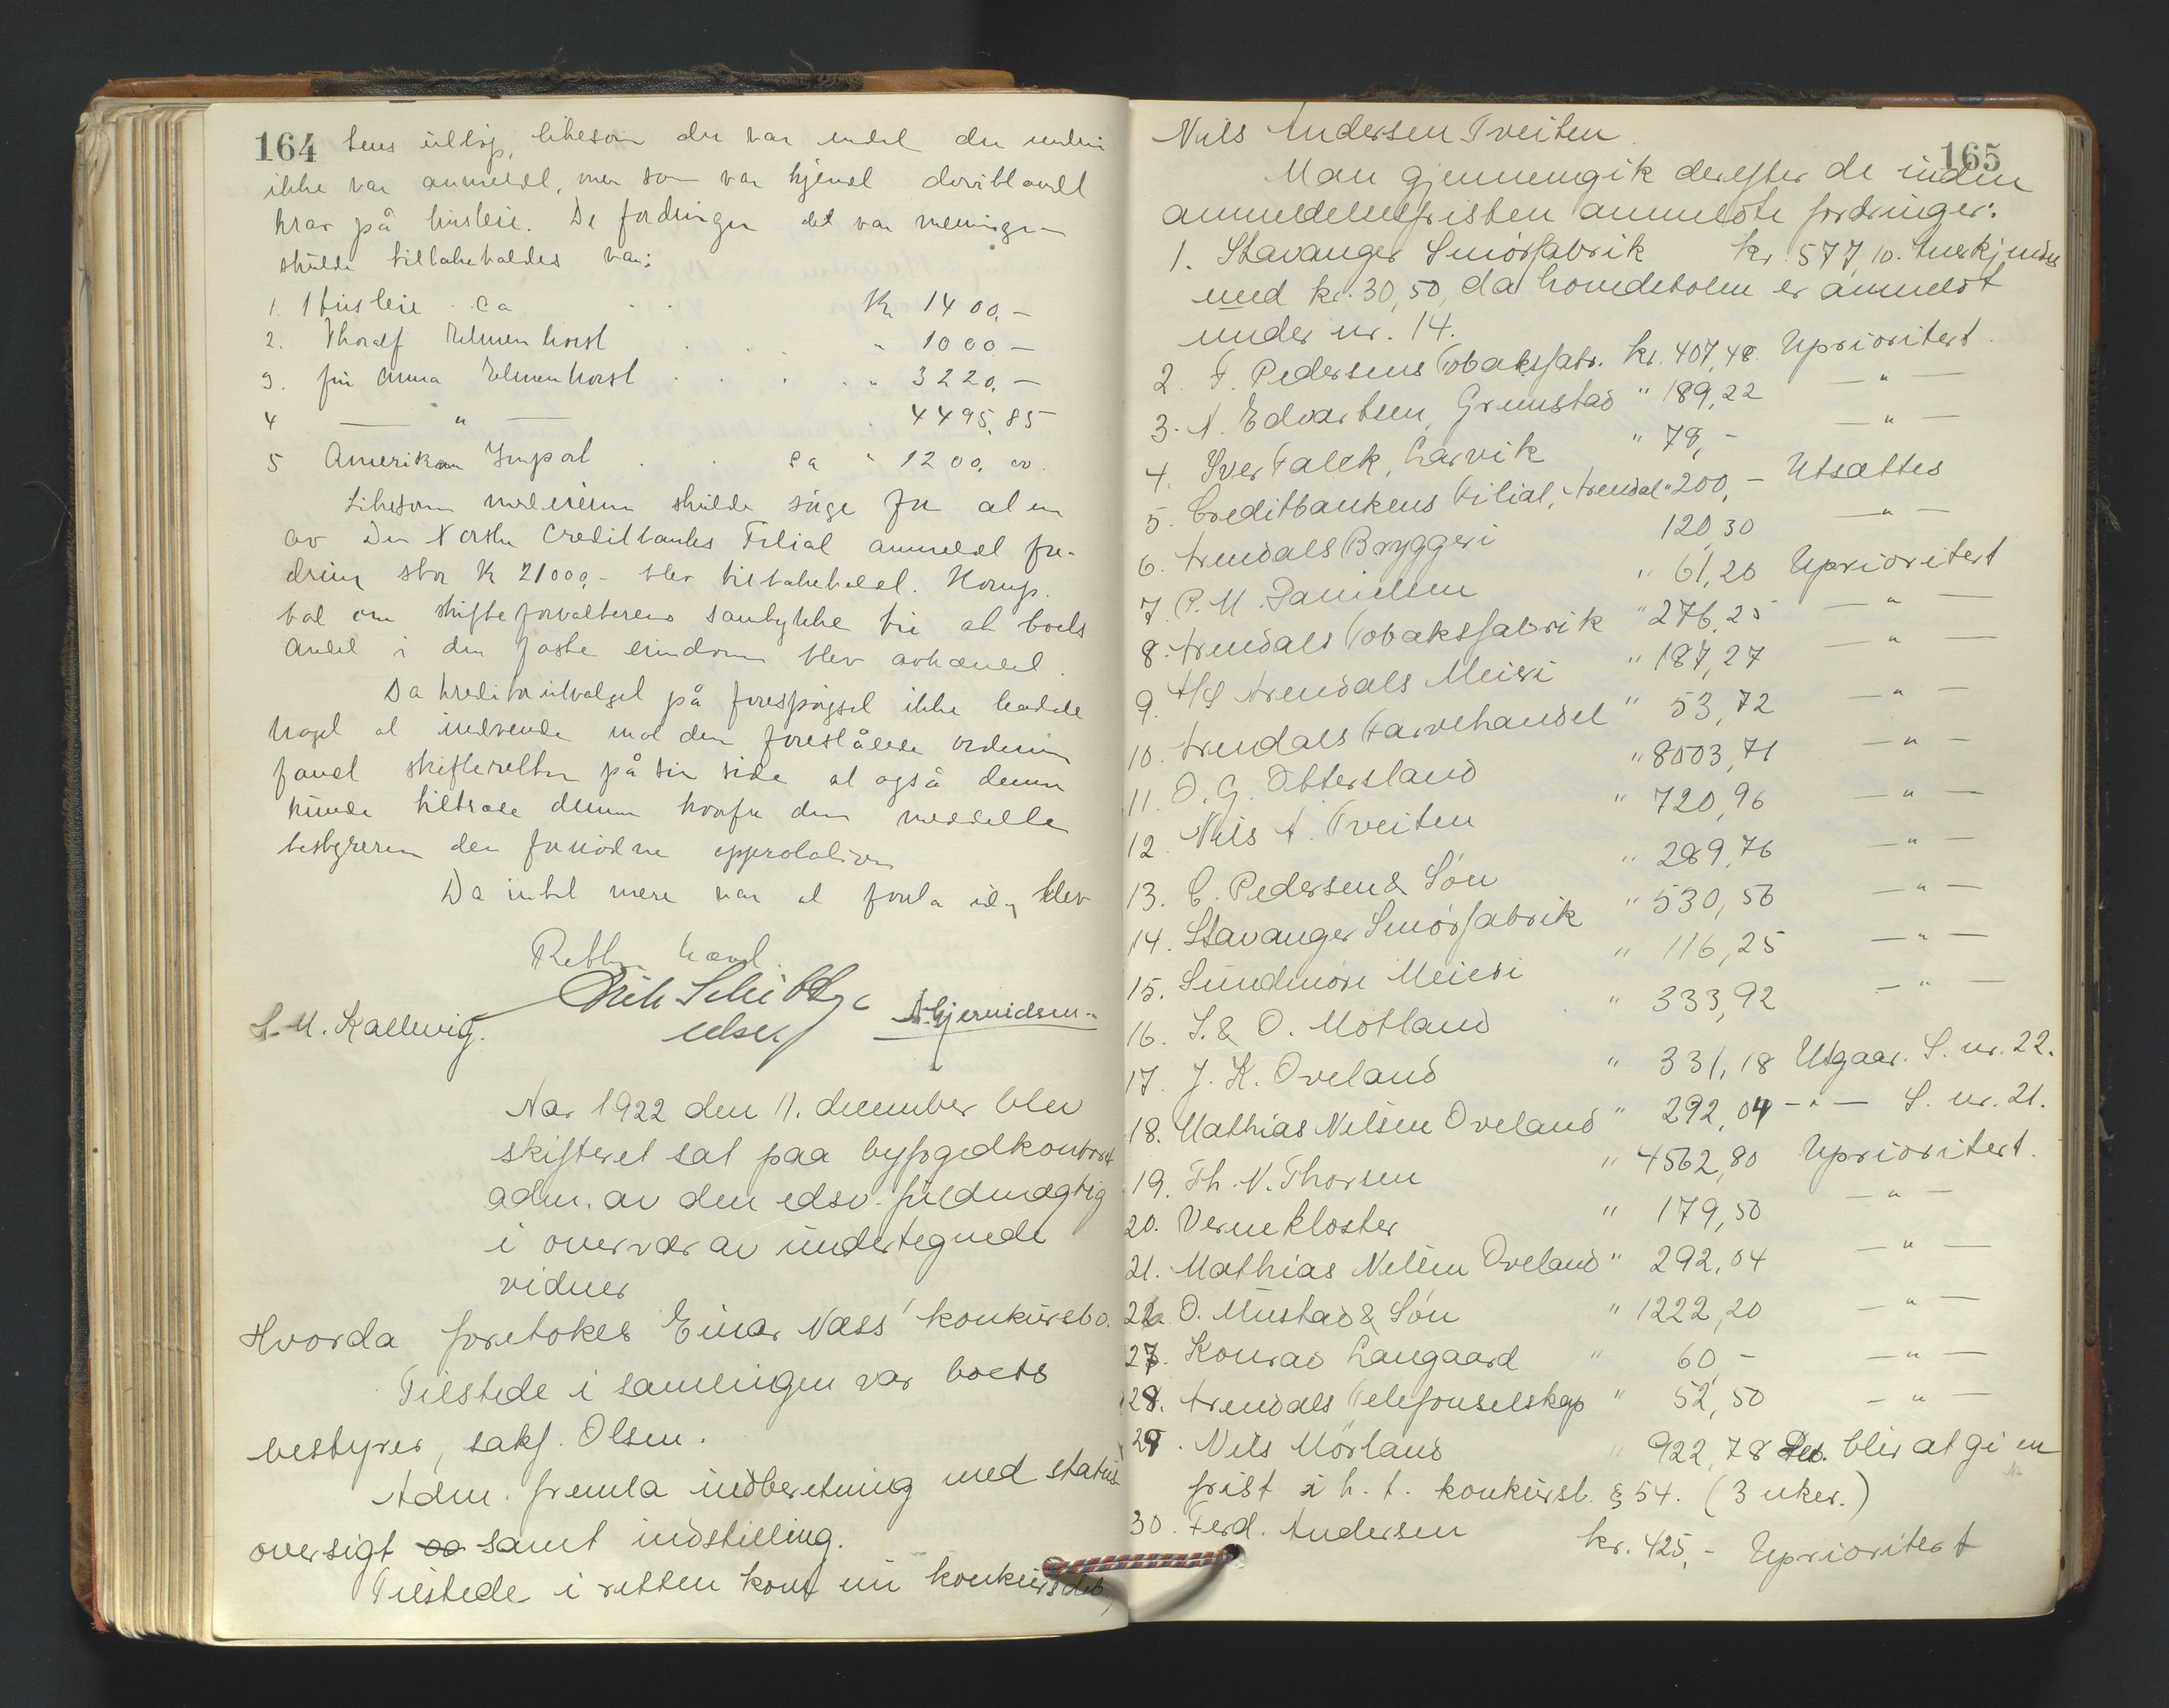 164 tens utløp, likesom der var endel der endnu
ikke var anmeldt, men som var kjendt deriblandt
krav på husleie. De fordringer det var meningen
skulde tilbakeholdes var:
1. Husleie ca Kr 1400,-
2. Thoralf Elmenhorst " 1000 -
3. fru Anna Elmenhorst " 3220,-
4 — " — 4495,85
5 Amerikan Import ca " 1200, oo.
Likesom skulde sørge for at en
av Den Norske Creditbanks Filial anmeldt for-
dring stor K 21000,- blev tilbakeholdt.
bad om skifteforvalterens samtykke til at boets
andel i den faste eiendom blev avhændet.
Da kreditorutvalget på forespørgsel ikke hadde
noget at indvende mot den foreslåede ordning
fandt skifteretten på sin side at også denne
kunde tiltræde denne hvorfor den meddelte
bestyreren den fornødne approbation
Da intet mere var at foreta idag blev
Retten hævet.
S. M. Kallevig.
Aar 1922 den 11. december blev
skifteret sat paa byfogedkontoret
adm. av den edsv. fuldmægtig
i overvær av undertegnede
vidner
Hvorda foretokes Einar Næss' konkursbo.
Tilstede i samlingen var boets
bestyrer, sakf. Olsen.
Adm. fremla indberetning med status
oversigt og samt indstilling.
Tilstede i retten kom nu konkursdeb,
165
Nils Andersen Tveiten
Man gjennemgik derefter de inden
anmeldelsesfristen anmeldte fordringer:
1. Stavanger Smørfabrik kr. 577,10. Anerkjendes
med kr. 30,50, da hovedstolen er anmeldt
under nr. 14.
2. F. Pedersens Tobaksfabr. kr. 407,48 Uprioritert.
3. N. Edvartsen, Grimstad " 189,22 — " —
4. Iver Falck, Larvik " 78,- — " —
5. Creditbankens Filial, Arendal " 200,- Utsættes
6. Arendals Bryggeri 120,30 — " —
7. P. M. Danielsen " 61,20 Uprioritert
8. Arendals Tobaksfabrik " 276,25 — " —
9. A/S Arendals Meieri " 187,27 — " —
10. Arendals Farvehandel " 53,72 — " —
11. O. G. Ottersland " 8503,71 — " —
12. Nils A. Tveiten " 720,96 — " —
13. C. Pedersen & Søn " 289,76 — " —
14. Stavanger Smørfabrik " 530,56 — " —
15. Sundmøre Meieri " 116,25 — " —
16. S. & O. Motland " 333,92 — " —
17. J. K. Oveland " 331,18 Utgaar. S. nr. 22.
18. Mathias Nilsen Oveland " 292,04 — " — S. nr. 21.
19. Th. N. Thorsen " 4562,80 Uprioritert.
20. Verne Kloster " 179,50 — " —
21. Mathias Nilsen Oveland " 292,04 — " —
O. Mustad & Søn " 1222,20 — " —
27. Konrad Langaard " 60,- — " —
28. Arendals Telefonselskap " 52,50 — " —
29. Nils Mørland " 922,78 blir at gi en
frist i h. t. konkursl. § 54. (3 uker.)
30. Ferd. Andersen kr. 425,- Uprioritert